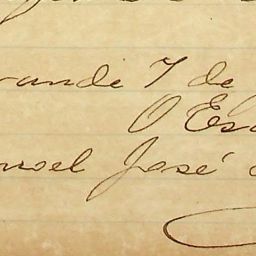 rande 7 de
O Esc
noel José